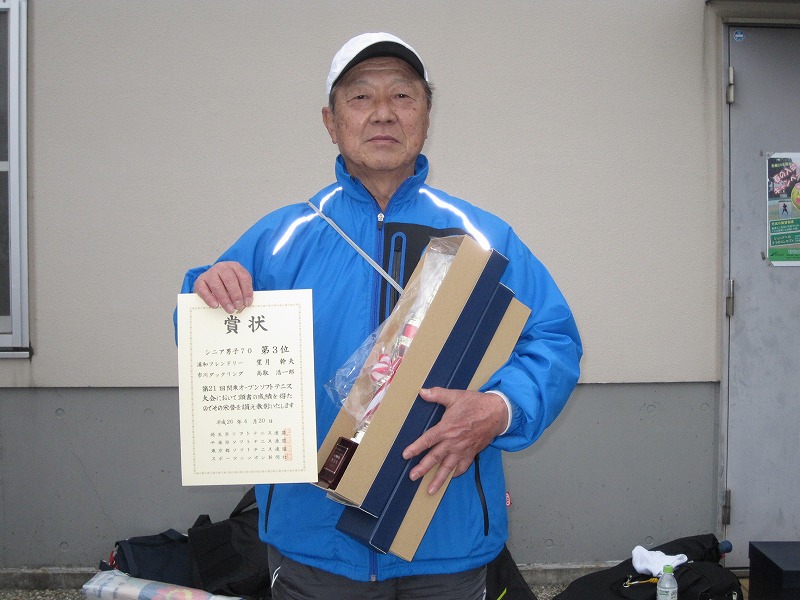 賞状
シニア男子70 第3位
浦和フレンドリー 望月 幹夫
市川ダックリング 鳥取 浩一郎
第21回関東オープンソフトテニス
大会において頭書の成績を得た
のでその栄誉を讃え表彰いたします
平成26年4月20日
埼玉県ソフトテニス連盟
千葉県ソフトテニス連盟
東京都ソフトテニス連盟
スポーツニッポン新聞社